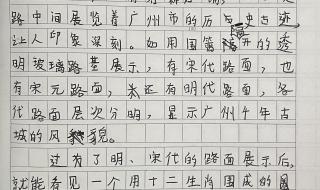 路中间展览着广州市的历史古迹
让人印象深刻。如用围着的透
明玻璃路基展示，有宋代路面，也
有宋元路面，未还有明代路面，各
代路面层次分明，显示广州千年古
城的风貌。
过为了明、宋代的路面展示后，
就能看见一个用十二生肖围成的